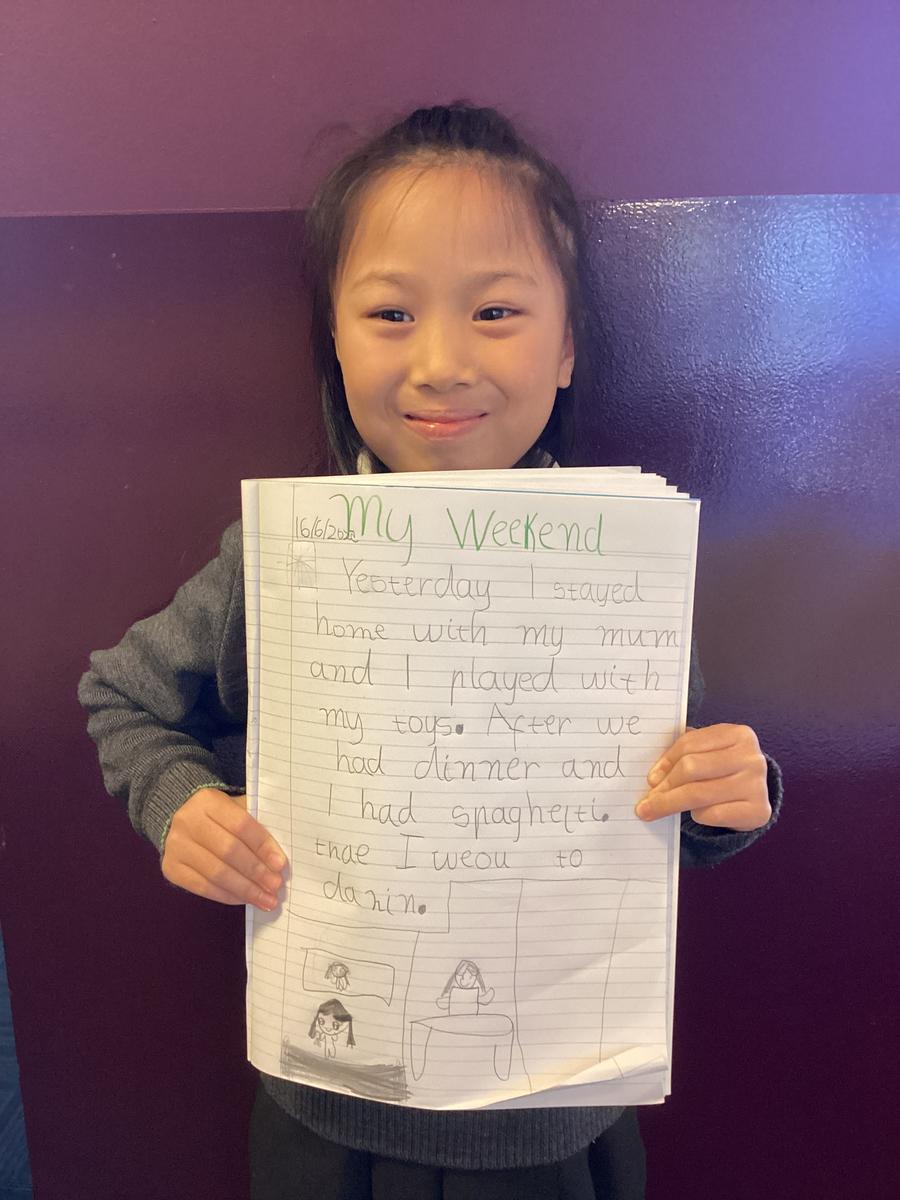 My Weekend
16/6/2022
Yesterday I stayed
home with my mum
and I played with
my toys. After we
had dinner and
I had spaghetti.
thae I weou to
danin.